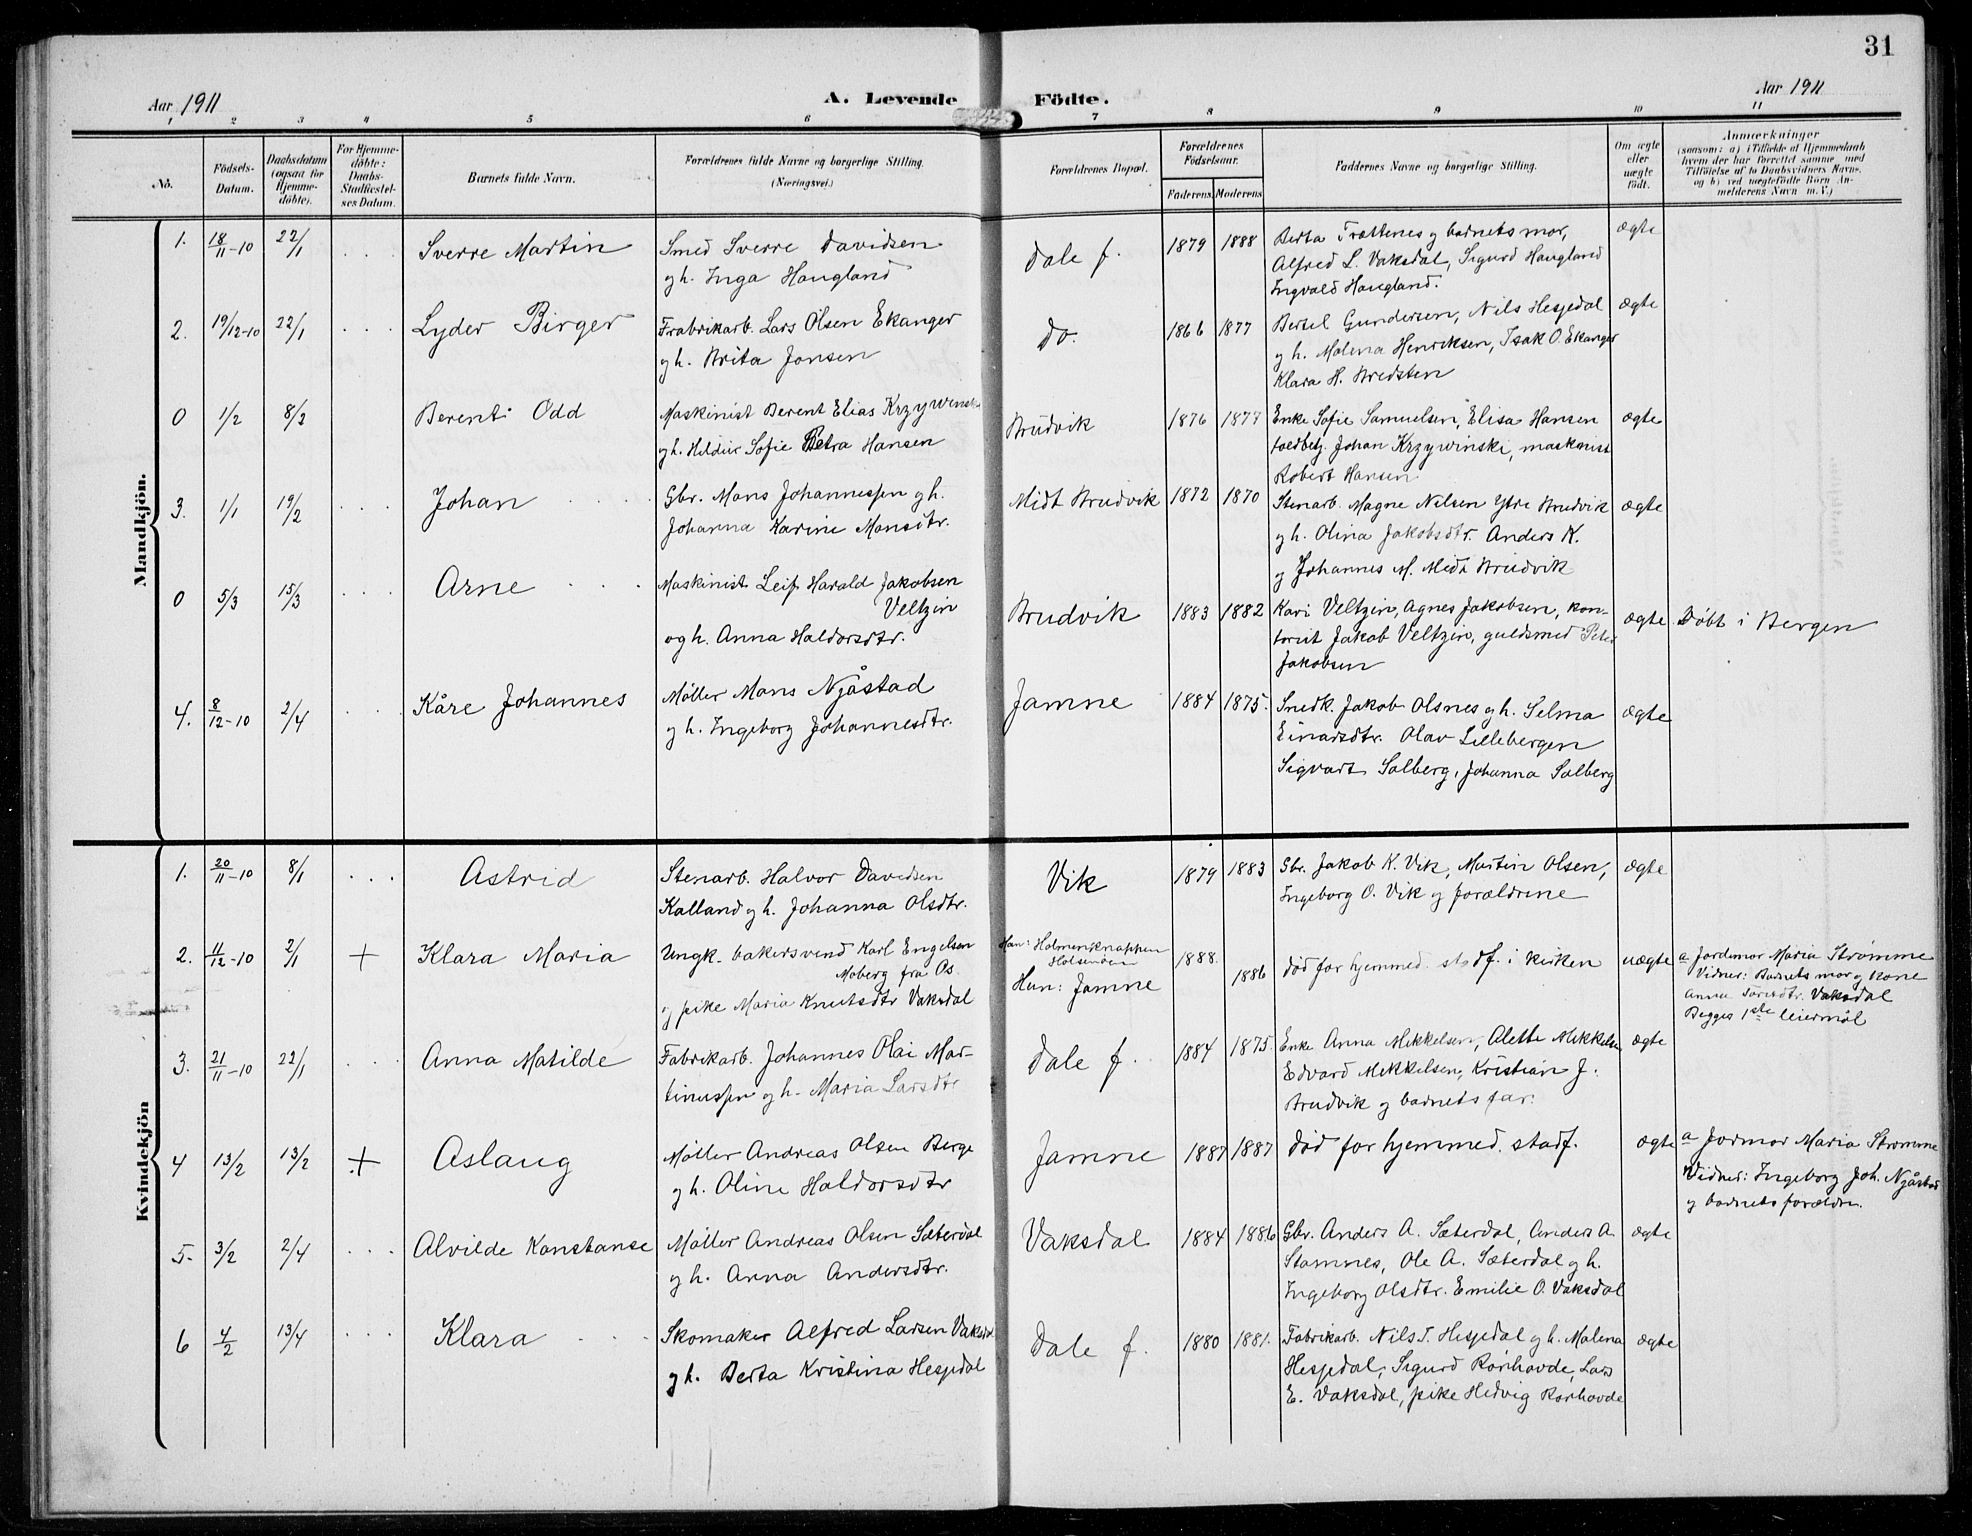 31
Aar 1911
A. Levende Födte.
Aar 1911
1 2 3 4 5 6 7 8 9 10 11
No.
Födsels-Datum.
Daabsdatum (ogsaa for Hjemme-döbte).
For Hjemme-döbte: Daabs-Stadfæstel-ses Datum.
Barnets fulde Navn.
Forældrenes fulde Navne og borgerlige Stilling.
(Næringsvei.)
Forældrenes Bopæl.
Forældrenes Födselsaar.
Faderens Moderens
Faddernes Navne og borgerlige Stilling.
Om ægte eller uægte födt.
Anmærkninger
(saasom: a) i Tilfælde af Hjemmedaab
hvem der har forrettet samme med
Tilföielse af to Daabsvidners Navne,
og b) ved uægtefödte Börn An-
melderens Navn m. V.)
Mandkjön.
1. 18/11-10 22/1 . . . Sverre Martin
Smed Sverre Davidsen
og h. Inga Haugland
Dale f. 1879 1888
Berta Trættenes og barnets mor,
Alfred L. Vaksdal, Sigurd Haugland
Ingvald Haugland.
ægte
2. 19/12-10 22/1 . . . Lyder Birger
Frabrikarb. Lars Olsen Ekanger
og h. Brita Jonsen
Do. 1866 1877
Bertel Gundersen, Nils Hesjedal
og h. Malena Henriksen, Isak O. Ekanger
Klara H. Bredsten
ægte
0 1/2 8/3 Berent Odd
Maskinist Berent Elias Krzywinski
og h. Hildur Sofie Petra Hansen
Brudvik 1876 1874
Enke Sofie Samuelsen, Elisa Hansen
toldbetj. Johan Krzywinski, maskinist
Robert Hansen
ægte
3. 1/1 19/2 . . . Johan . . .
Gbr. Mons Johannessen og h.
Johanna Karine Monsdtr.
Midt Brudvik 1872 1870
Stenarb. Magne Nilsen Ytre Brudvik
og h. Olina Jakobsdtr. Anders K.
og Johannes M. Midt Brudvik
ægte
0 5/3 15/3 . . . Arne . . .
Maskinist Leif Harald Jakobsen
Veltzin
og h. Anna Haldorsdtr.
Brudvik 1883 1882
Kari Veltzin, Agnes Jakobsen, kon-
torist Jakob Veltzin, guldsmed Peter
Jakobsen
ægte Döbt i Bergen
4. 8/12-10 2/4 . . . Kåre Johannes
Möller Mons Njåstad
og h. Ingeborg Johannesdtr.
Jamne 1884 1875.
Snedk. Jakob Olsnes og h. Selma
Einarsdtr. Olav Lillebergen
Sigvart Solberg, Johanna Solberg
ægte
Kvindekjön
1. 20/11-10 8/1 . . . Astrid
Stenarb. Halvor Davidsen
Kalland og h. Johanna Olsdtr.
Vik 1879 1883
Gbr. Jakob K. Vik, Martin Olsen,
Ingeborg O. Vik og forældrene
ægte
2. 11/12-10 2/1 + Klara Maria
Ungk. bakersvend Karl Engelsen
Moberg fra Os.
og pike Maria Knutsdtr Vaksdal
Han: Holmenknappen
Holsenöen
Hun: Jamne
1888 1886
död for hjemmed. stadf. i kirken
uægte
a Jordmor Maria Strömme
Vidner: Barnets mor og kone
Anna Larsdtr. Vaksdal
Begges 1ste leiermål
3. 21/11-10 22/1 . . Anna Matilde
Fabrikarb. Johannes Olai Mar-
tinussen og h. Maria Larsdtr
Dale f. 1884 1875.
Enke Anna Mikkelsen, Alette Mikkelsen
Edvard Mikkelsen, Kristian J.
Brudvik og barnets far.
ægte
4 13/2 13/2 + Aslaug
Möller Andreas Olsen Berge
og h. Oline Haldorsdtr
Jamne 1887 1887
död for hjemmed. stadf.
ægte
a Jormor Maria Strömme
Vidner: Ingeborg Joh. Njåstad
og barnets forældre.
5. 3/2 2/4 . . . Alvilde Konstanse
Möller Andreas Olsen Sæterdal
og h. Anna Andersdtr.
Vaksdal 1884 1886
Gbr. Anders A. Sæterdal, Anders A.
Stamnes, Ole A. Sæterdal og h.
Ingeborg Olsdtr. Emilie O. Vaksdal
ægte
6 4/2 13/4 . . . Klara . . .
Skomaker Alfred Larsen Vaksdal
og h. Berta Kristina Hesjedal
Dale f. 1880 1881.
Fabrikarb. Nils T. Hesjedal og h. Malena
Hesjedal, Sigurd Rörhovde, Lars
E. Vaksdal, pike Hedvig Rörhovde
ægte